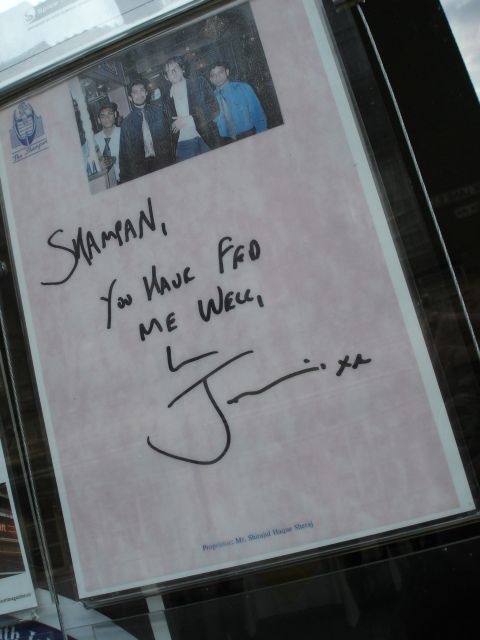 The Shampan
SHAMPAN,
YOU HAVE FED
ME WELL,
Proprietor: Mr. Shirajul Haque Sheraj